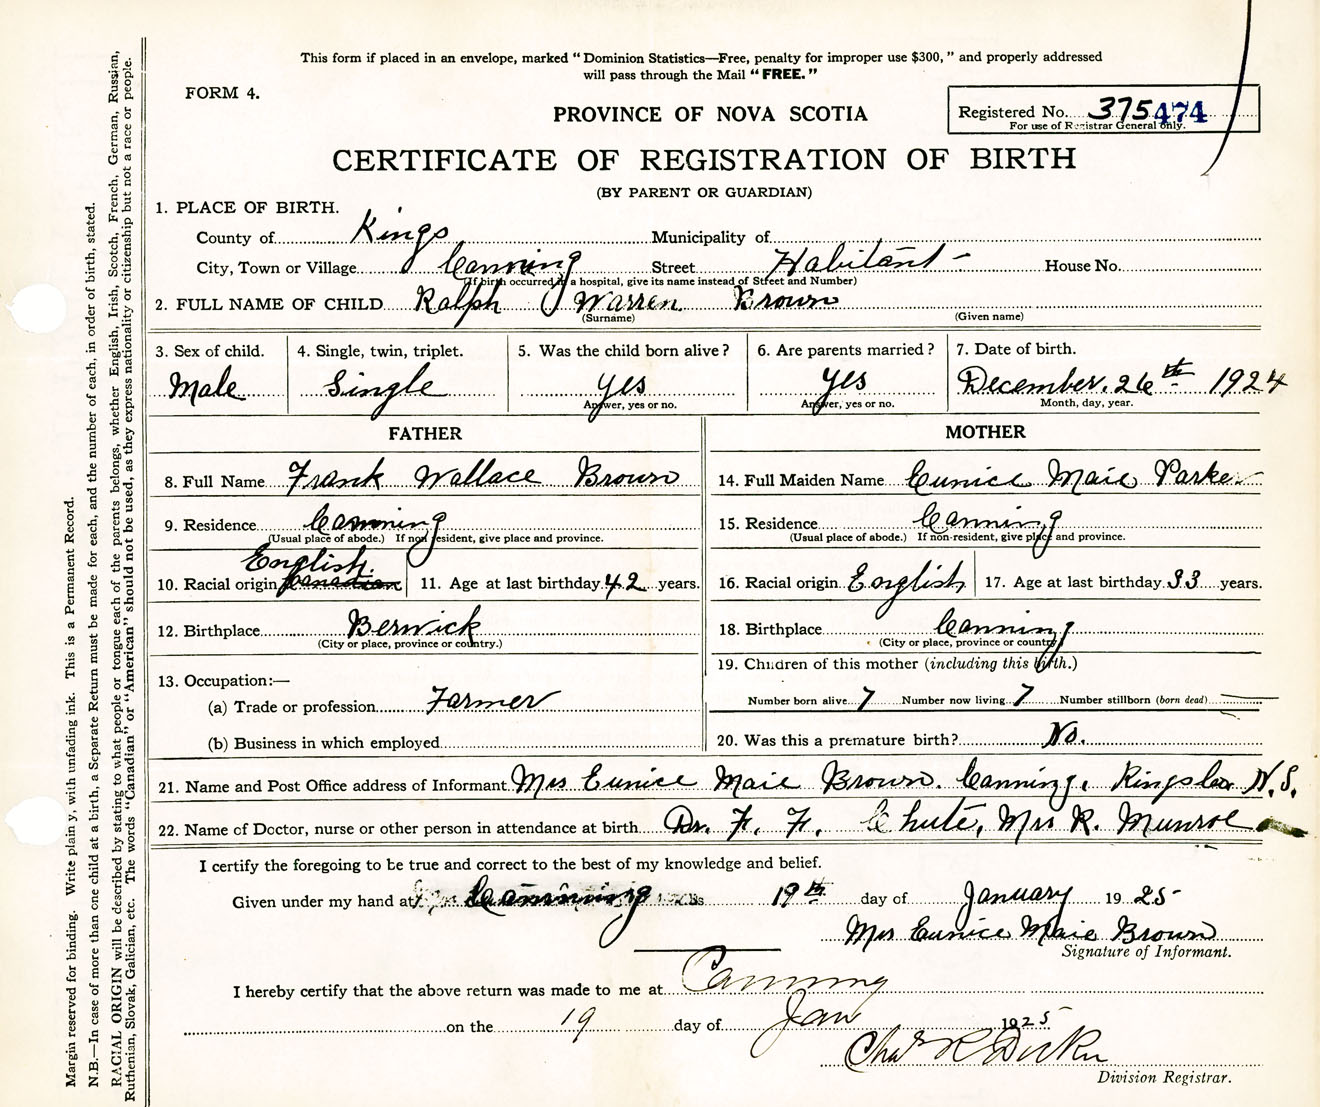 This form if placed in an envelope, marked "Dominion Statistics—Free, penalty for improper use $300," and properly addressed
will pass through the Mail "FREE."
FORM 4.
PROVINCE OF NOVA SCOTIA
Registered No. 375474
For use of Registrar General only.
CERTIFICATE OF REGISTRATION OF BIRTH
(BY PARENT OR GUARDIAN)
1. PLACE OF BIRTH.
County of Kings Municipality of
City, Town or Village Canning Street Habitant - House No.
(If birth occurred in a hospital, give its name instead of Street and Number)
2. FULL NAME OF CHILD Ralph Warren Brown
(Surname) (Given name)
3. Sex of child. 4. Single, twin, triplet. 5. Was the child born alive? 6. Are parents married? 7. Date of birth.
Male Single yes yes December. 26th 1924
Answer, yes or no. Answer, yes or no. Month, day, year.
FATHER MOTHER
8. Full Name Frank Wallace Brown 14. Full Maiden Name Eunice Maie Parker
9. Residence Canning 15. Residence Canning
(Usual place of abode.) If non resident, give place and province. (Usual place of abode.) If non-resident, give place and province.
English.
10. Racial origin Canadian 11. Age at last birthday 42 years. 16. Racial origin English 17. Age at last birthday 33 years.
12. Birthplace Berwick 18. Birthplace Canning
(City or place, province or country.) (City or place, province or country)
13. Occupation:— 19. Children of this mother (including this birth.)
(a) Trade or profession Farmer Number born alive 7 Number now living 7 Number stillborn (born dead)
(b) Business in which employed 20. Was this a premature birth? No.
21. Name and Post Office address of Informant Mrs Eunice Maie Brown. Canning, Kings Co. N.S.
22. Name of Doctor, nurse or other person in attendance at birth Dr. F. F. Chute, Mrs R. Munroe
I certify the foregoing to be true and correct to the best of my knowledge and belief.
Given under my hand at Canning 19th day of January 1925
Mrs Eunice Maie Brown
Signature of Informant.
I hereby certify that the above return was made to me at Canning
on the 19 day of Jan 1925
Chas R
Division Registrar.
Margin reserved for binding. Write plainly, with unfading ink. This is a Permanent Record.
N.B.—In case of more than one child at a birth, a Separate Return must be made for each, and the number of each, in order of birth, stated.
RACIAL ORIGIN will be described by stating to what people or tongue each of the parents belongs, whether English, Irish, Scotch, French, German, Russian,
Ruthenian, Slovak, Galician, etc. The words "Canadian" or "American" should not be used, as they express nationality or citizenship but not a race or people.